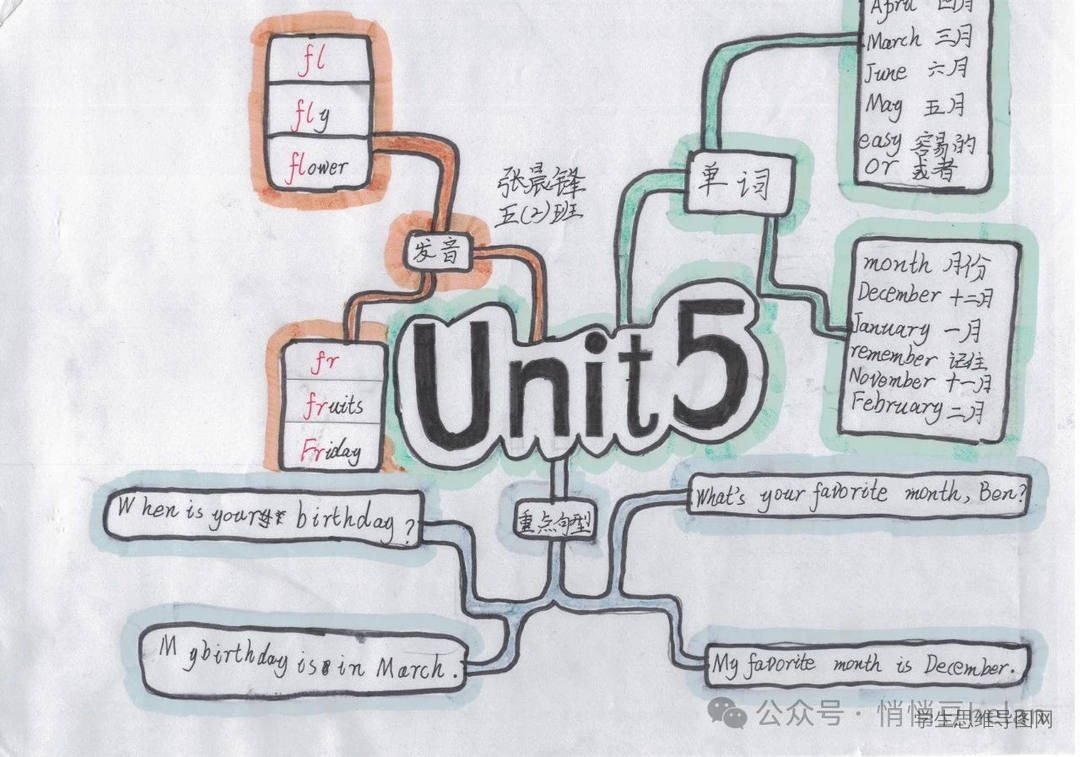 fl
fly
flower
发音
fr
fruits
Friday
张晨锋
五(2)班
单词
April 四月
March 三月
June 六月
May 五月
easy 容易的
or 或者
month 月份
December 十二月
January 一月
remember 记住
November 十一月
February 二月
Unit5
重点句型
When is your birthday?
My birthday is in March.
What's your favorite month, Ben?
My favorite month is December.
公众号·悄悄豆
学生思维导图网